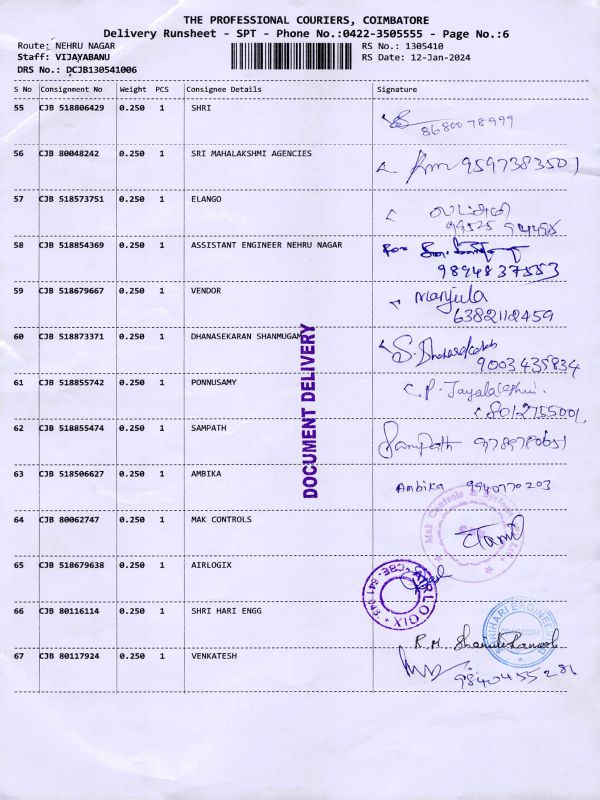 THE PROFESSIONAL COURIERS, COIMBATORE
Delivery Runsheet - SPT - Phone No.:0422-3505555 - Page No.:6
Route: NEHRU NAGAR
RS No.: 1305410
Staff: VIJAYABANU
RS Date: 12-Jan-2024
DRS No.: DCJB130541006
S No Consignment No Weight PCS Consignee Details Signature
55 CJB 518806429 0.250 1 SHRI
8680078999
56 CJB 80048242 0.250 1 SRI MAHALAKSHMI AGENCIES
9597383501
57 CJB 518573751 0.250 1 ELANGO
58 CJB 518854369 0.250 1 ASSISTANT ENGINEER NEHRU NAGAR
9894837553
59 CJB 518679667 0.250 1 VENDOR Manjula
6382112459
60 CJB 518873371 0.250 1 DHANASEKARAN SHANMUGAM S. Dhanasekaran
9003435834
61 CJB 518855742 0.250 1 PONNUSAMY C.P. Jayalakshmi
8012755001
62 CJB 518855474 0.250 1 SAMPATH Sampath 9789780651
63 CJB 518506627 0.250 1 AMBIKA Ambika 9940770203
64 CJB 80062747 0.250 1 MAK CONTROLS Tamil
Mak Controls & Systems
65 CJB 518679638 0.250 1 AIRLOGIX
AIRLOGIX CBE-641
66 CJB 80116114 0.250 1 SHRI HARI ENGG
SRIHARI ENGINEER
R.M.
67 CJB 80117924 0.250 1 VENKATESH
9840455281
DOCUMENT DELIVERY